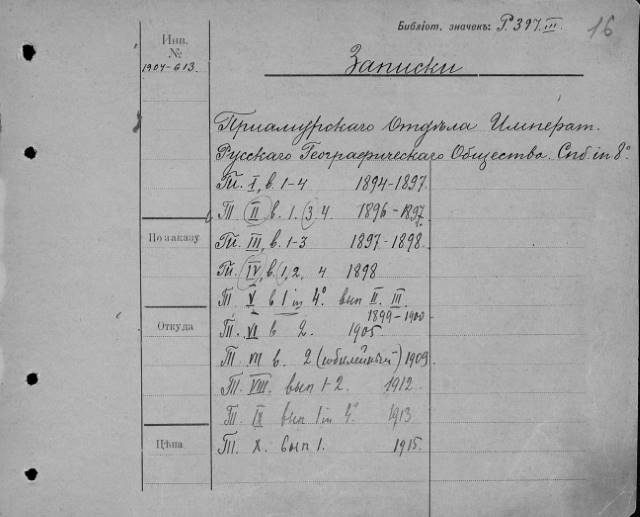 Библіот. значекъ: Р.397.III. 16
Инв.
№
1904-613.
Записки
Приамурскаго Отдѣла Императ.
Русскаго Географическаго Общества. Спб. in 8°
Т. I, в. 1-4 1894-1897.
Т II в. 1. 3 4 1896-1897.
По заказу
Т. III, в. 1-3 1897-1898.
Т. IV, в. 1, 2, 4 1898
Т V в I in 4°. вып II. III.
1899-1900
Откуда
Т. VI в 2. 1905.
Т. VII в. 2 (юбилейный) 1909.
Т. VIII. вып 1-2. 1912.
Т. IX вып 1 in 4°. 1913
Цѣна
Т. X. вып 1. 1915.